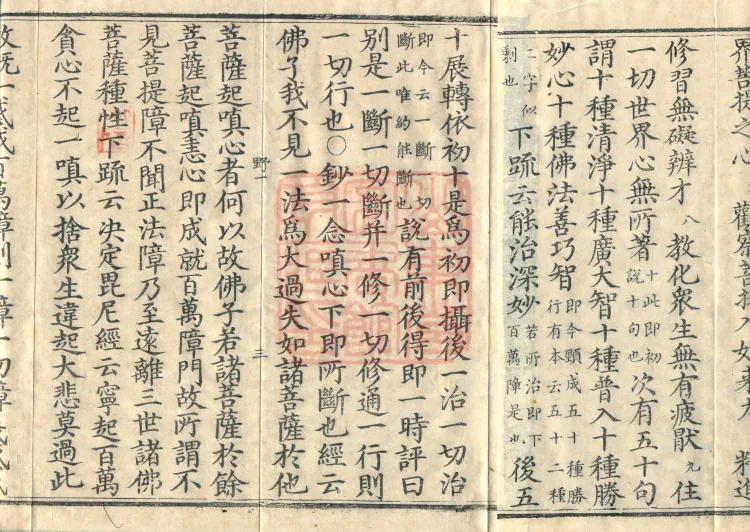 界菩提之心 觀察菩
修習無礙辨才八教化衆生無有疲猒九住
一切世界心無所著十此即初說十句也次有五十句
謂十種清淨十種廣大智十種普入十種勝
妙心十種佛法善巧智即今顕成五十種勝行有本云五十二種
二字似剩也下疏云能治深妙若所治即下百萬障是也後五
十展轉依初十是爲初即攝後一治一切治
即今云一斷一切斷此唯約能斷也說有前後得即一時評曰
別是一斷一切斷并一修一切修通一行則
一切行也○鈔一念嗔心下即所斷也經云
佛子我不見一法爲大過失如諸菩薩於他
野一 三
菩薩起嗔心者何以故佛子若諸菩薩於餘
菩薩起嗔恚心即成就百萬障門故所謂不
見菩提障不聞正法障乃至遠離三世諸佛
菩薩種性下疏云決定毘尼經云寧起百萬
貪心不起一嗔以捨衆生違起大悲莫過此
故既一惑成百萬障則一障一切障